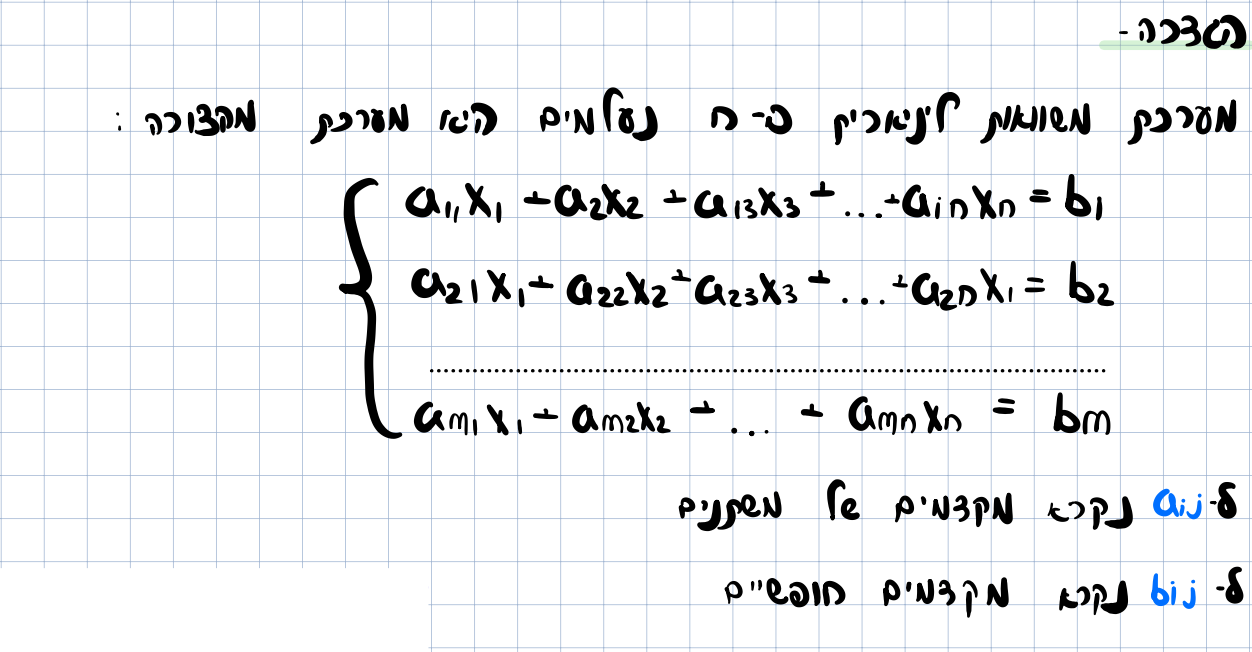 הגדרה-
מערכת משוואות לינאריות ב-n נעלמים היא מערכת מהצורה:
a₁₁x₁ + a₂x₂ + a₁₃x₃ + ... + a₁ₙxₙ = b₁
a₂₁x₁ + a₂₂x₂ + a₂₃x₃ + ... + a₂ₙx₁ = b₂
................................................
aₘ₁x₁ + aₘ₂x₂ + ... + aₘₙxₙ = bₘ
ל-aij נקרא מקדמים של משתנים
ל-bij נקרא מקדמים חופשיים